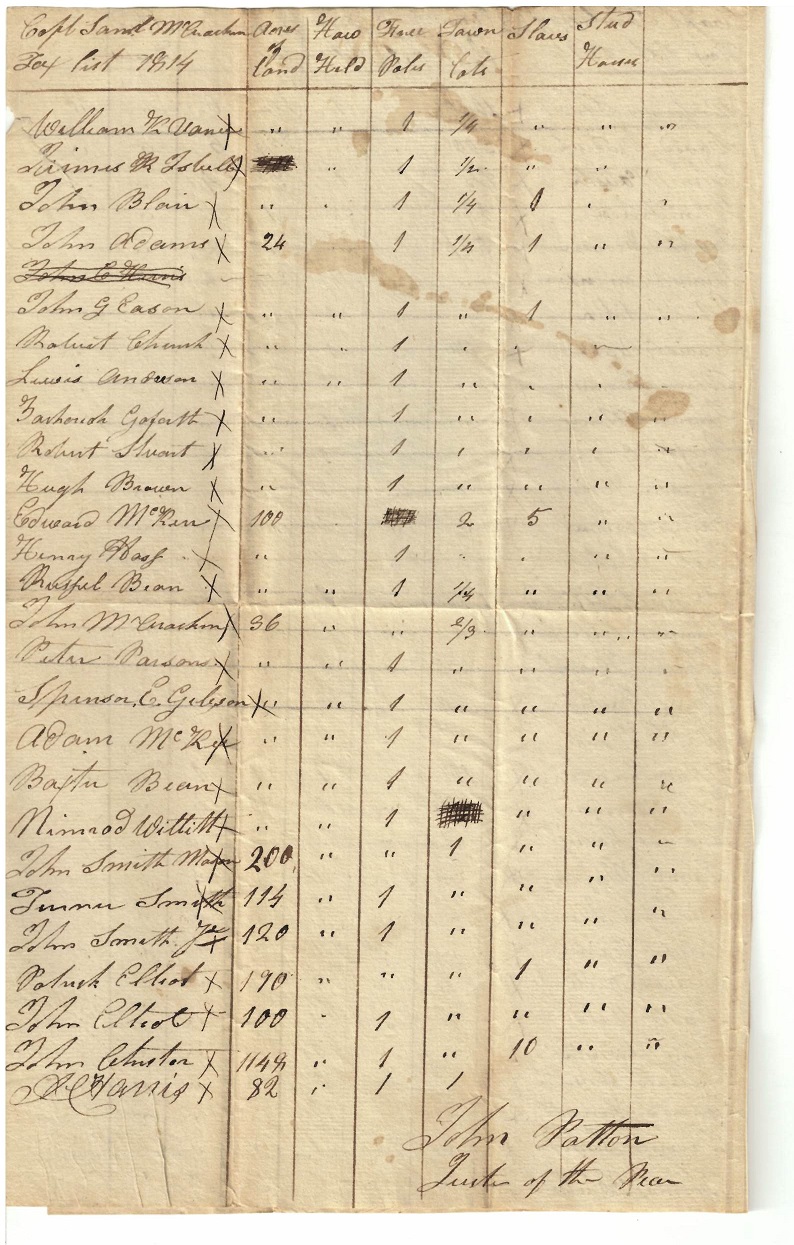 Capt Saml McCrackin Acres of Land How Held Free Poles Town Lots Slaves Stud Horses
Tax list 1814
William K Vance X " " 1 1/4 " " "
X " 1 1/2 " "
John Blair X " " 1 1/4 1 " "
John Adams X 24 1 1/4 1 " "
John C Harris
John G Eason X " " 1 " 1 " "
Robert Church X " " 1 " "
Lewis Anderson X " " 1 " " " "
Goforth X " 1 " " " "
Robert Stuart X " 1 " " " "
Hugh Brown X " 1 " " " "
Edward McKerr X 100 2 5 " "
Henry X " 1 " " " "
Russel Bean X " " 1 1/4 " " "
John McCrackin X 36 " " 2/3 " " "
Peter Parsons X " " 1 " " " "
Spensor E. Gibson X " " 1 " " " "
Adam McKee X " " 1 " " " "
Baxter Bean X " " 1 " " " "
Nimrod Willitt X " " 1 " " "
John Smith X 200 " " 1 " " "
Turner Smith X 114 " 1 " " " "
John Smith Jr X 120 " 1 " " " "
Patrick Elliot X 190 " " " 1 " "
John Elliot X 100 " 1 " " " "
John Chester X 1148 " 1 " 10 " "
A Harris X 82 " 1 1
John Patton
Justis of the Peac